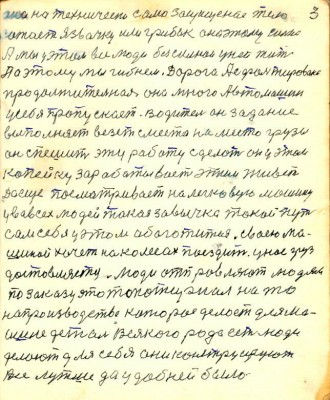 3
она технически само защищеная тело
хотает язвочку или грибок она этому сильна
А мы у этом вси люди безсильни у ней жить
По этому мы гибнем. Дорога Асфальтирована
продолжительная она много Автомашин
у себя пропускает. Водител он задание
выполняет везет с места на место грузы
он спешит эту работу сделот он у этом
копейку заработывает этим живет
Да еще посматривает на легковую машину
у вас всех людей такая завычка такой путь
сам себя у этом обаготитив. своею ма-
шиной хочет на колесах поездит. у нас груз
доставляетця. Люди отправляют людям
по заказу это
на производстве которое делает для ма-
шине детал Всякого рода сет люди
делают для себя они конструируют
все лутше да удобней было